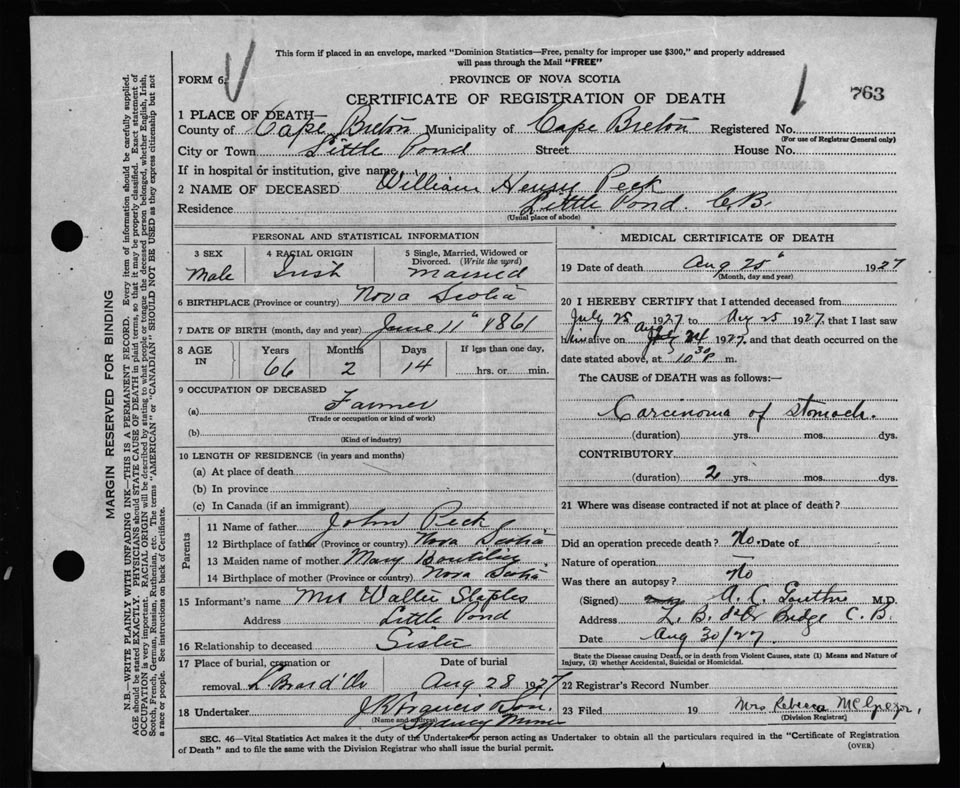 This form if placed in an envelope, marked "Dominion Statistics—Free, penalty for improper use $300," and properly addressed
will pass through the Mail "FREE"
FORM 6.
PROVINCE OF NOVA SCOTIA
763
CERTIFICATE OF REGISTRATION OF DEATH
1 PLACE OF DEATH—
County of Cape Breton Municipality of Cape Breton Registered No.
(For use of Registrar General only)
City or Town Little Pond Street House No.
If in hospital or institution, give name
2 NAME OF DECEASED William Henry Peck
Residence Little Pond. C.B.
(Usual place of abode)
PERSONAL AND STATISTICAL INFORMATION
3 SEX 4 RACIAL ORIGIN 5 Single, Married, Widowed or Divorced. (Write the word)
Male Irish Married
6 BIRTHPLACE (Province or country) Nova Scotia
7 DATE OF BIRTH (month, day and year) June 11" 1861
8 AGE IN Years Months Days If less than one day,
66 2 14 hrs. or min.
9 OCCUPATION OF DECEASED
(a) Farmer
(Trade or occupation or kind of work)
(b)
(Kind of industry)
10 LENGTH OF RESIDENCE (in years and months)
(a) At place of death
(b) In province
(c) In Canada (if an immigrant)
Parents
11 Name of father John Peck
12 Birthplace of father (Province or country) Nova Scotia
13 Maiden name of mother Mary Boutilier
14 Birthplace of mother (Province or country) Nova Scotia
15 Informant's name Mrs Walter Staples
Address Little Pond
16 Relationship to deceased Sister
17 Place of burial, cremation or Date of burial
removal L Bras d'Or Aug 28 1927
18 Undertaker
(Name and address) Sydney Mines
MEDICAL CERTIFICATE OF DEATH
19 Date of death Aug 25" 1927
(Month, day and year)
20 I HEREBY CERTIFY that I attended deceased from
July 25 1927 to Aug 25 1927, that I last saw
him alive on Aug 24 1927, and that death occurred on the
date stated above, at 10 30 P m.
The CAUSE of DEATH was as follows:—
Carcinoma of Stomach.
(duration) yrs. mos. dys.
CONTRIBUTORY
(duration) 2 yrs. mos. dys.
21 Where was disease contracted if not at place of death?
Did an operation precede death? No. Date of
Nature of operation
Was there an autopsy? No
(Signed) A. C. Gouthro M.D.
Address L. B. d'Or Bridge C.B.
Date Aug 30/27
State the Disease causing Death, or in death from Violent Causes, state (1) Means and Nature of
Injury, (2) whether Accidental, Suicidal or Homicidal.
22 Registrar's Record Number
23 Filed 19 Mrs Rebecca McGregor,
(Division Registrar)
SEC. 46—Vital Statistics Act makes it the duty of the Undertaker or person acting as Undertaker to obtain all the particulars required in the "Certificate of Registration
of Death" and to file the same with the Division Registrar who shall issue the burial permit.
(OVER)
MARGIN RESERVED FOR BINDING
N.B.—WRITE PLAINLY WITH UNFADING INK—THIS IS A PERMANENT RECORD. Every item of information should be carefully supplied.
AGE should be stated EXACTLY. PHYSICIANS should STATE CAUSE OF DEATH in plain terms, so that it may be properly classified. Exact statement of
OCCUPATION is very important. RACIAL ORIGIN will be described by stating to what people or tongue the deceased person belonged, whether English, Irish,
Scotch, French, German, Russian, Ruthenian, etc. The terms "AMERICAN" or "CANADIAN" SHOULD NOT BE USED as they express citizenship but not
a race or people. See instructions on back of Certificate.